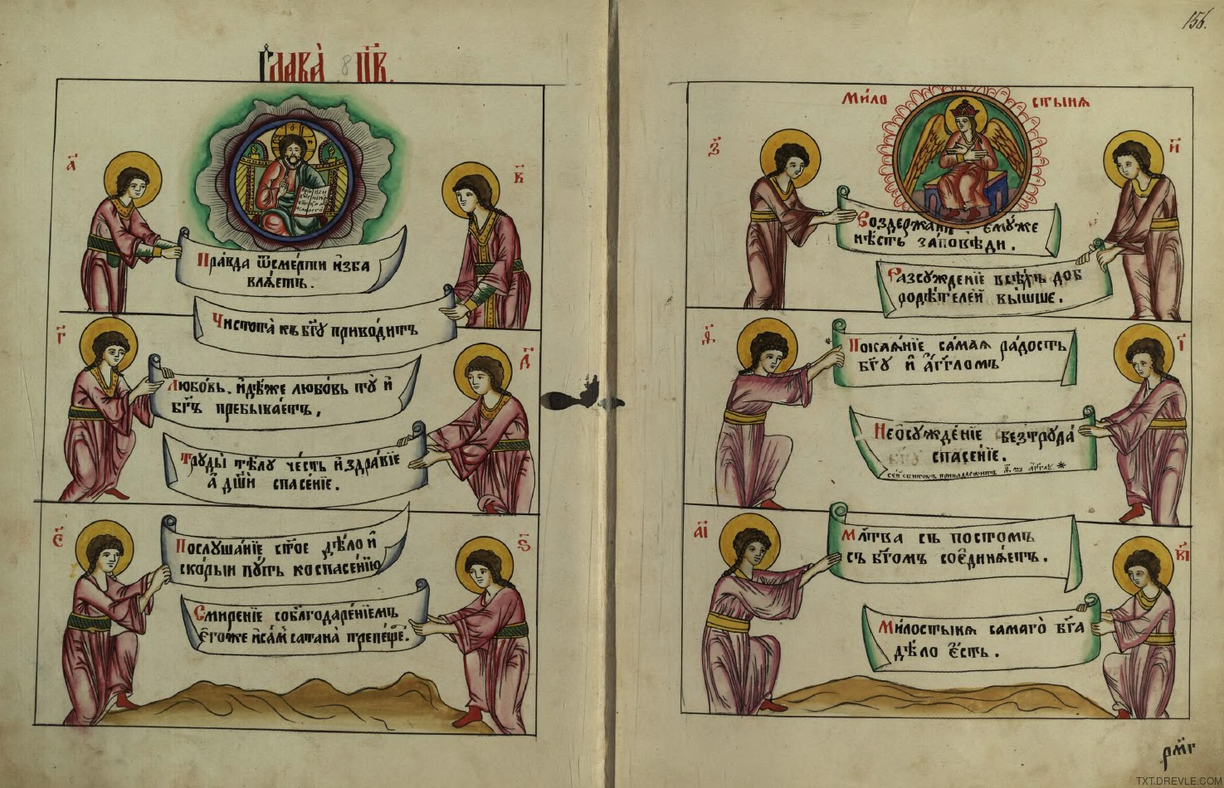 Глава̀ 8 п҃в.
а҃
в҃
Правда ѿсмерти изба
влѧетъ.
Чистота̀ къ бг҃у приводитъ
г҃
д҃
Любо́вь. идѣже любовь ту̀ и
бг҃ъ пребыва́етъ,
Труды̀ тѣлу че́сть и здра́вїе
а҆ дш҃и спасе́нїе.
є҃
ѕ҃
Послуша́нїе ст҃ое дѣ́ло и
ско́рыи пу́ть ко спасе́нїю
Смире́нїе собл҃годаре́нїемъ
є҆гоже и са́м сатана̀ трепеще.
156.
Ми́ло стыня
з҃
и҃
Воздержанїе є҆муже
нѣсть за́повѣди.
Разсужде́нїе всѣхъ доб
родѣ́телей вы́шше.
ѳ҃
і҃
Покаѧ́нїе са́маѧ ра́дость
бг҃у и а҆́гг҃ломъ
Неѡсужде́нїе безтруда̀
спасе́нїе.
сей свитокъ принадлежитъ
аі҃
ві҃
Мл҃тва съ посто́мъ
съ бг҃омъ соединѧ́етъ.
Ми́лостынѧ самаго̀ бг҃а
дѣ́ло є҆́сть.
рм҃г
TXT.DREVLE.COM